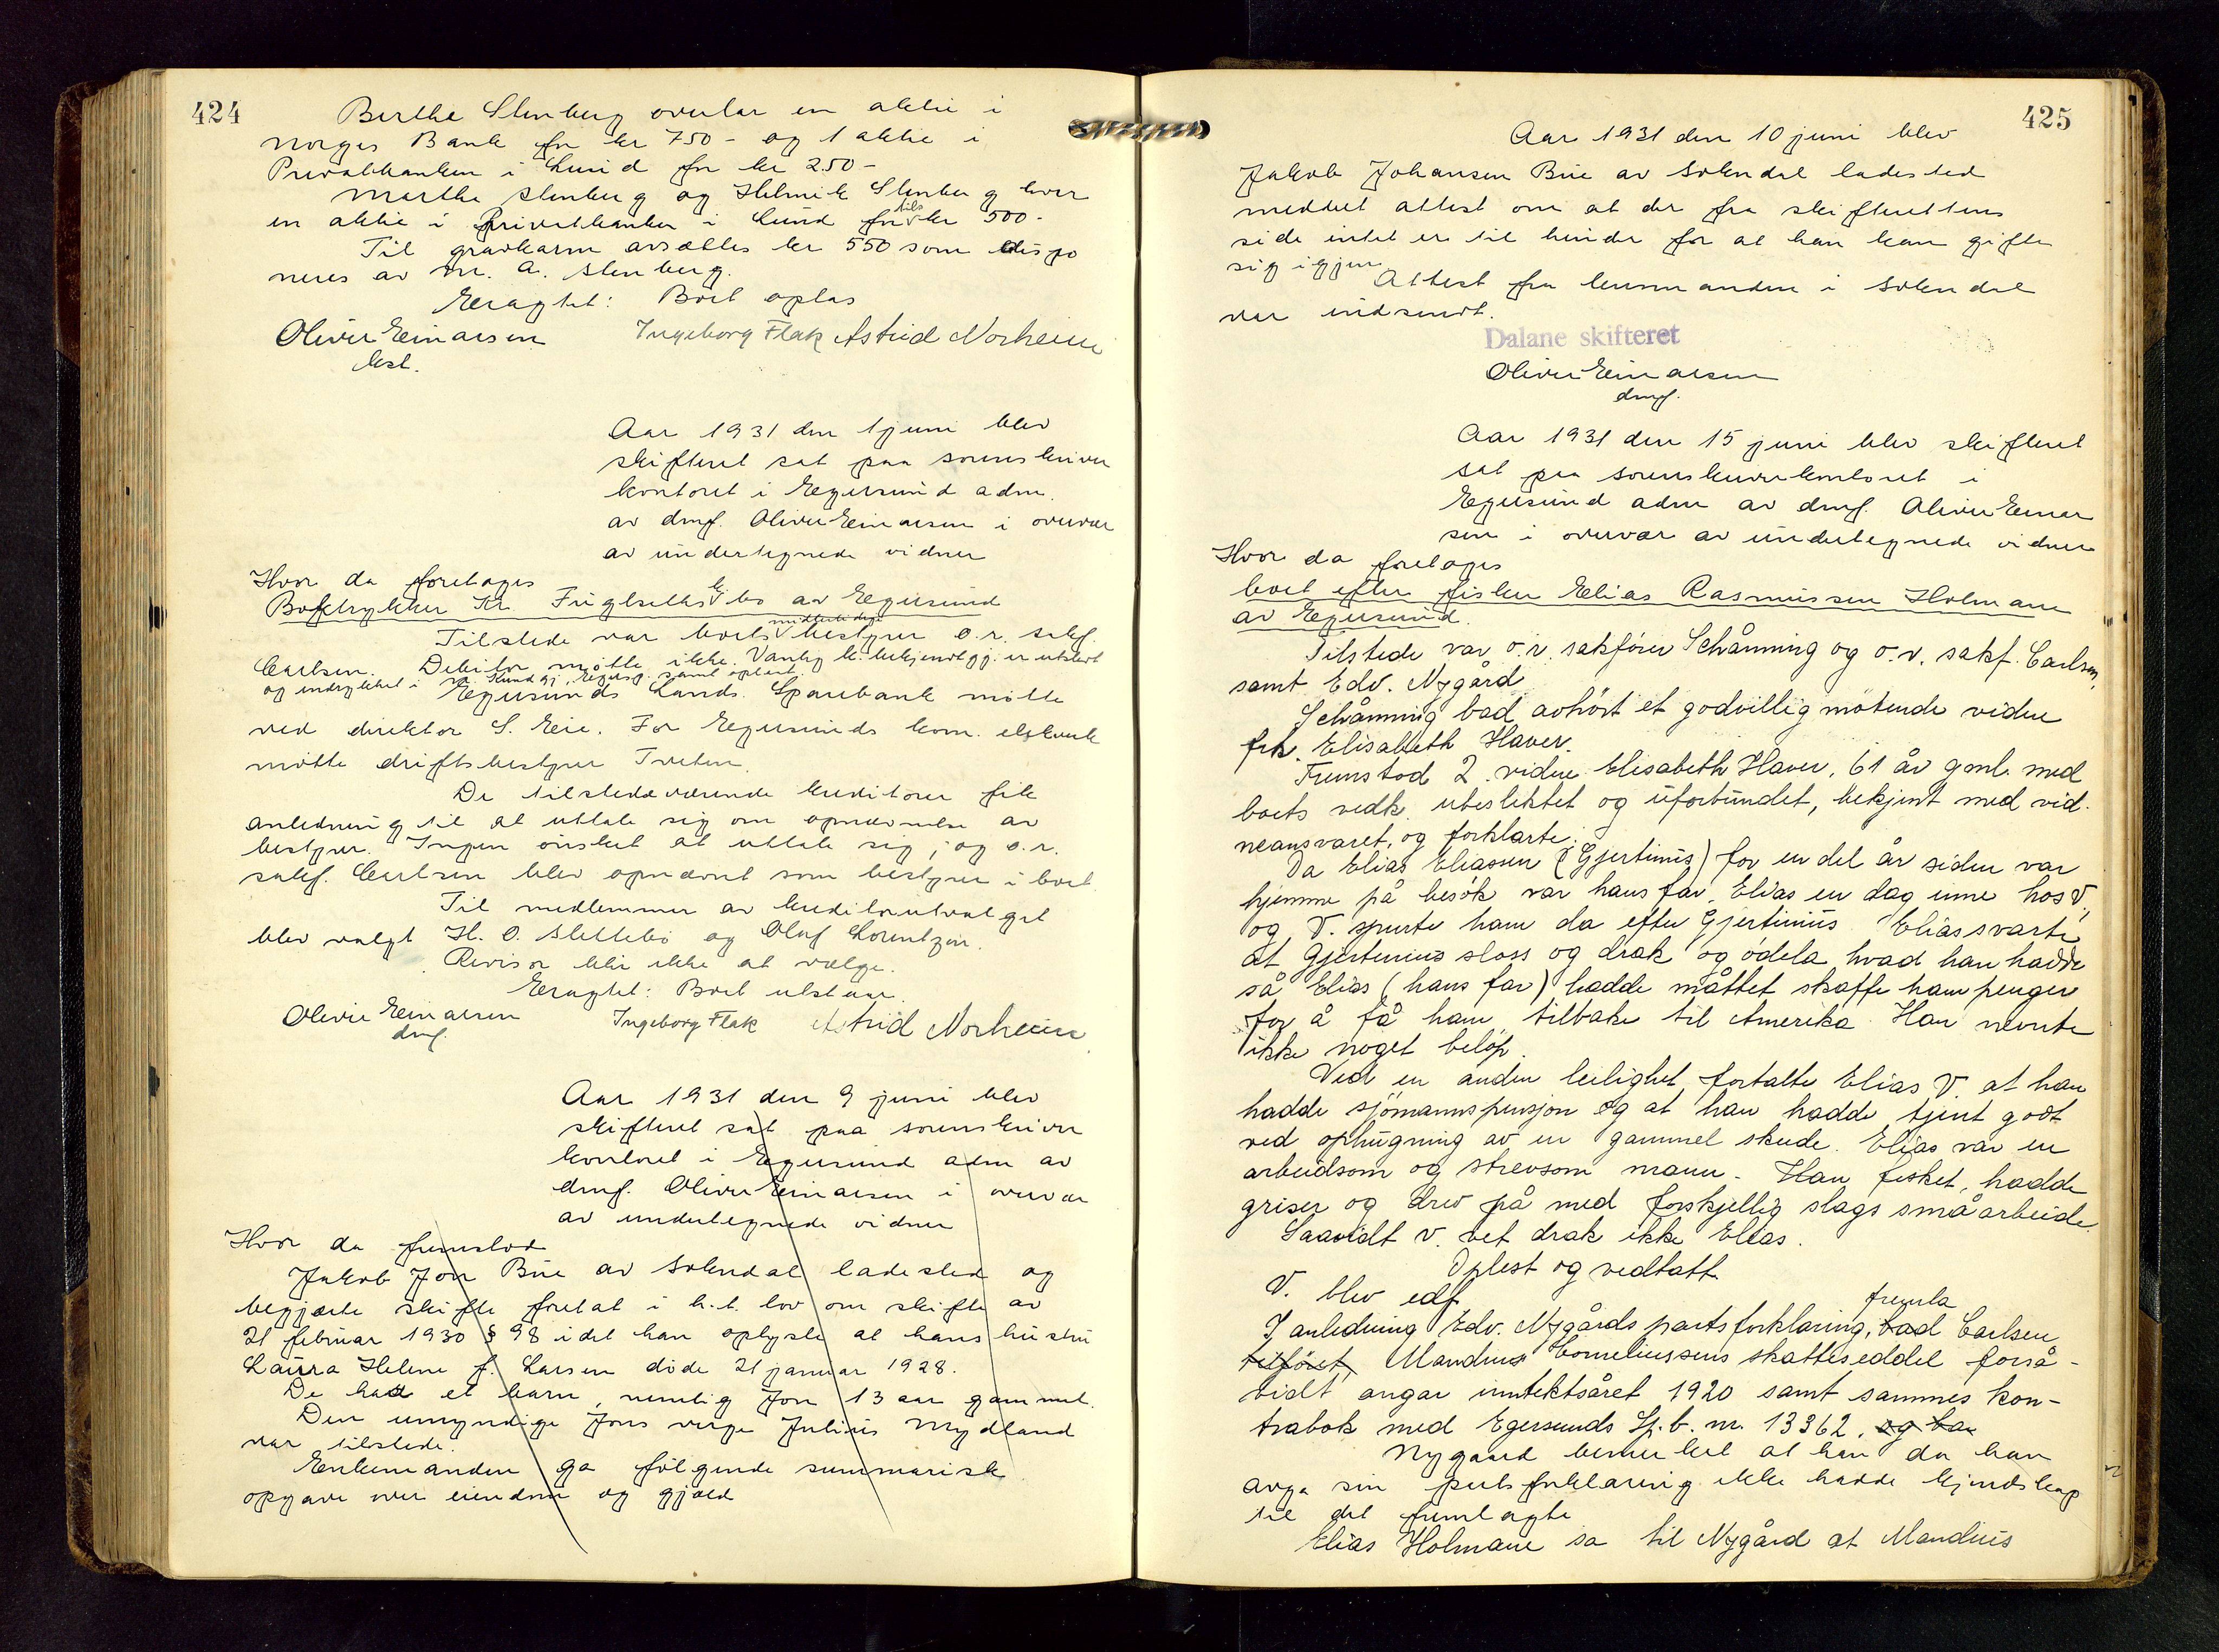 424
Berthe Stenberg overtar en aktie i
Norges Bank for kr 750 - og 1 aktie i
Privatbanken i Lund for kr 250 -
Marthe Stenberg og Helmik Stenberg hver
en aktie i Privatbanken i Lund for tils kr 500 -
Til gravkarm avsættes kr 550 som dispo
neres av M. A. Stenberg.
Eragtet: Boet oplas
Oliver Einarsen Ingeborg Flak Astrid Norheim
kst.
Aar 1931 den 1 juni blev
skifteret sat paa sorenskriver
kontoret i Egersund adm.
av dmf. Oliver Einarsen i overvær
av undertegnede vidner
Hvor da foretoges
Boktrykker Kr. Fuglseths kbo av Egersund
Tilstede var boets midlertidige bestyrer o.r. sakf.
Carlsen. Debitor møtte ikke. Vanlig k. bekjendtgj. er utstedt
og indrykket i N. Kundgj., Egersp. samt opslaat.
Egersunds Lands. Sparebank møtte
ved direktør S. Eie. For Egersunds kom. elekverk
møtte driftsbestyrer Tveten.
De tilstedeværende kreditorer fik
anledning til at uttale sig om opnævnelse av
bestyrer. Ingen ønsket at uttale sig, og o.r.
sakf. Carlsen blev opnævnt som bestyrer i boet.
Til medlemmer av kreditorutvalget
blev valgt H. O. Slettebø og Oluf Lorentzen.
Revisor blir ikke at vælge.
Eragtet: Boet utstaar.
Oliver Einarsen Ingeborg Flak Astrid Norheim
dmf.
Aar 1931 den 9 juni blev
skifteret sat paa sorenskriver
kontoret i Egersund adm av
dmf. Oliver Einarsen i overvær
av undertegnede vidner
Hvor da fremstod
Jakob Jon Bue av Sokndal ladested og
begjærte skifte foretat i h.t. lov om skifte av
21 februar 1930 § 98 idet han oplyste at hans hustru
Laura Helene f. Larsen døde 21 januar 1928.
De had et barn, nemlig Jon 13 aar gammel.
Den umyndige Jons verge Julius Mydland
var tilstede.
Enkemanden ga følgende summariske
opgave over eiendom og gjæld
425
Aar 1931 den 10 juni blev
Jakob Johansen Bue av Sokndal ladested
meddelt attest om at der fra skifterettens
side intet er til hinder for at han kan gifte
sig igjen.
Attest fra lensmanden i Sokndal
var indsendt.
Dalane skifteret
Oliver Einarsen
dmf.
Aar 1931 den 15 juni blev skifteret
sat paa sorenskriverkontoret i
Egersund adm av dmf. Oliver Einar
sen i overvær av undertegnede vidner
Hvor da foretoges
boet efter fisker Elias Rasmussen Holmane
av Egersund.
Tilstede var o.r. sakfører Schånning og o.r. sakf. Carlsen,
samt Edv. Nygård.
Schånning bad avhørt et godvillig møtende vidne
frk. Elisabeth Haver.
Fremstod 2. vidne Elisabeth Haver, 61 år gml. med
boets vedk. ubeslektet og uforbundet, bekjent med vid-
neansvaret, og forklarte:
Da Elias Eliassen (Gjertinius) for en del år siden var
hjemme på besøk var hans far, Elias en dag inne hos V.
og V. spurte ham da efter Gjertinius. Elias svarte
at Gjertinius sloss og drak og ødela hvad han hadde
så Elias (hans far) hadde måttet skaffe ham penger
for å få ham tilbake til Amerika. Han nevnte
ikke noget beløp.
Ved en anden leilighet fortalte Elias V. at han
hadde sjömannspensjon og at han hadde tjent godt
ved ophugning av en gammel skude. Elias var en
arbeidsom og strevsom mann. Han fisket, hadde
griser og drev på med forskjellig slags småarbeide.
Saavidt v. vet drak ikke Elias.
Oplest og vedtatt.
V. blev edf.
fremla
I anledning Edv. Nygårds partsforklaring, bad Carlsen
tilføiet, Mandius Corneliussens skatteseddel forså-
vidt angår inntektsåret 1920 samt sammes kon-
trabok med Egersunds Sp.b. nr. 13362, og ba
Nygaard bemerket at han da han
avga sin partsforklaring ikke hadde kjendskap
til det fremlagte
Elias Holmane sa til Nygård at Mandius